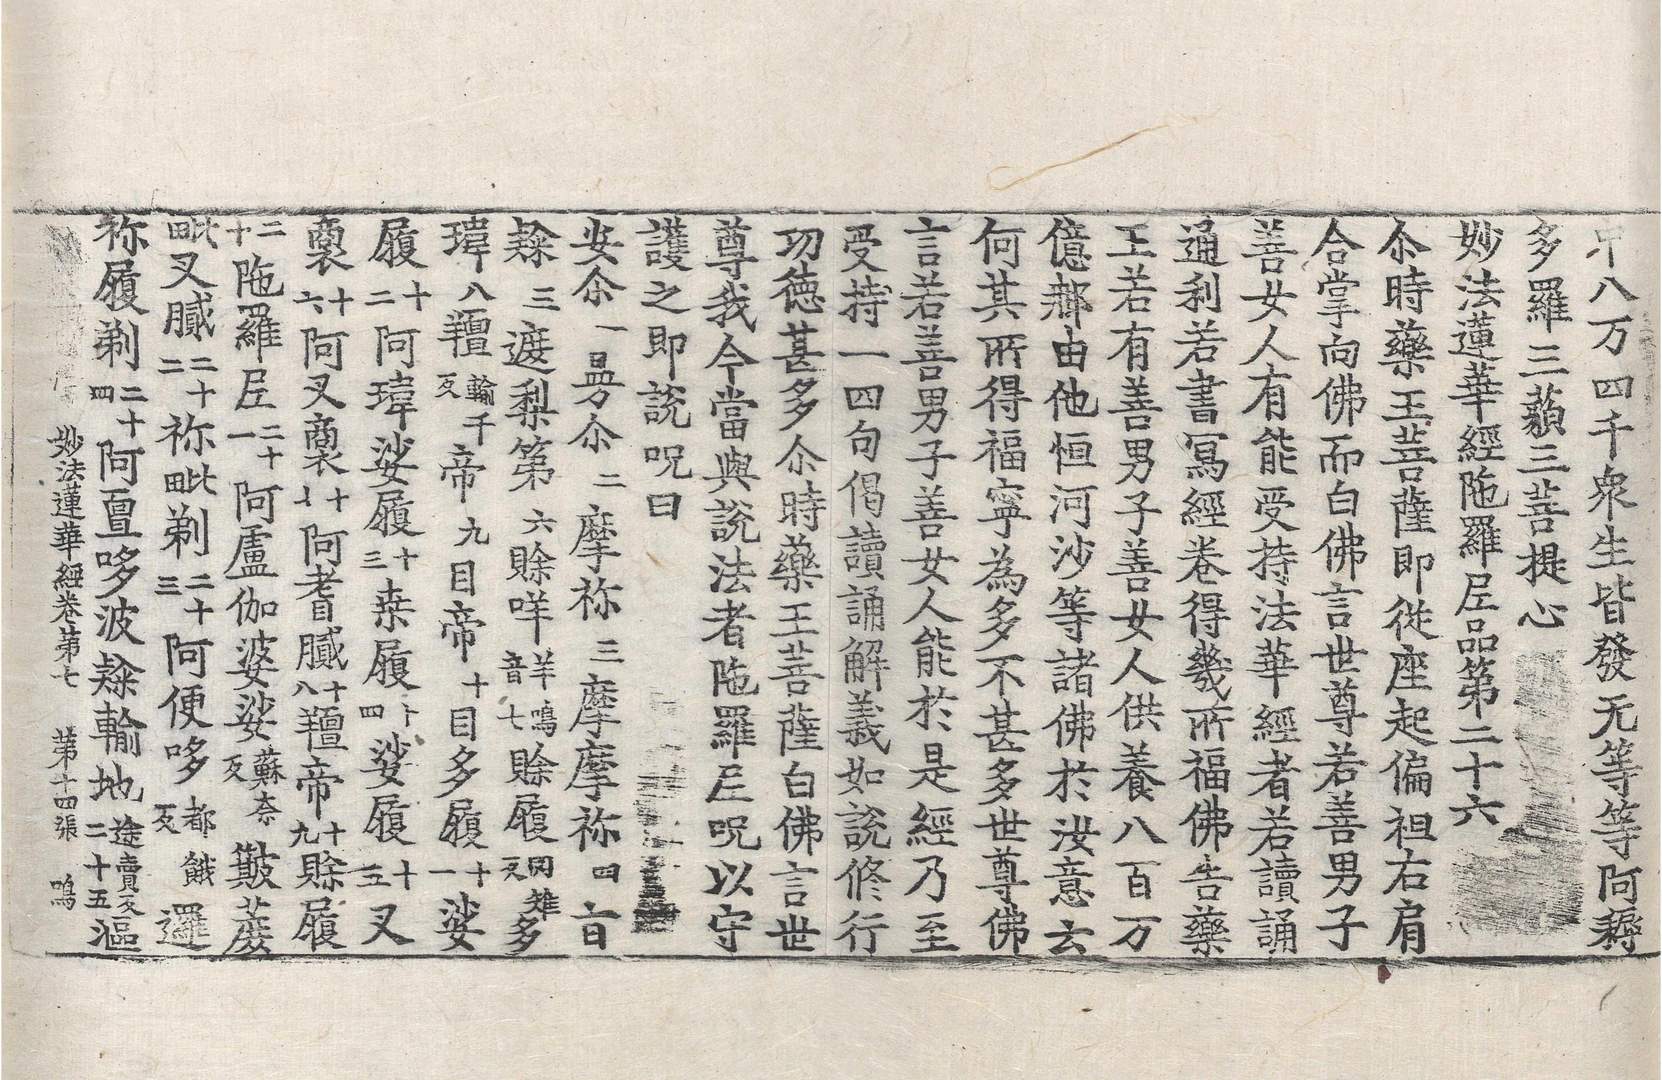 中八万四千衆生皆發无等等阿耨
多羅三藐三菩提心
妙法蓮華經陁羅尼品第二十六
尒時藥王菩薩即從座起偏袒右肩
合掌向佛而白佛言世尊若善男子
善女人有能受持法華經者若讀誦
通利若書寫經卷得幾所福佛告藥
王若有善男子善女人供養八百万
億郍由他恒河沙等諸佛於汝意云
何其所得福寧為多不甚多世尊佛
言若善男子善女人能於是經乃至
受持一四句偈讀誦解義如說修行
功德甚多尒時藥王菩薩白佛言世
尊我今當與說法者陁羅尼呪以守
護之即說呪曰
安尒一曼尒二摩祢三摩摩祢四旨
隸三遮梨第六賒咩羊鳴音七賒履罔雉反多
瑋八羶輸千反帝九目帝十目多履十一娑
履十二阿瑋娑履十三桒履十四娑履十五叉
裔十六阿叉裔十七阿耆膩十八羶帝十九賒履
二十陁羅尼二十一阿盧伽婆娑蘇奈反簸蔗
毗叉膩二十二祢毗剃二十三阿便哆都餓反邏
祢履剃二十四阿亶哆波隸輸地途賣反二十五漚
妙法蓮華經卷第七 第十四張 鳴